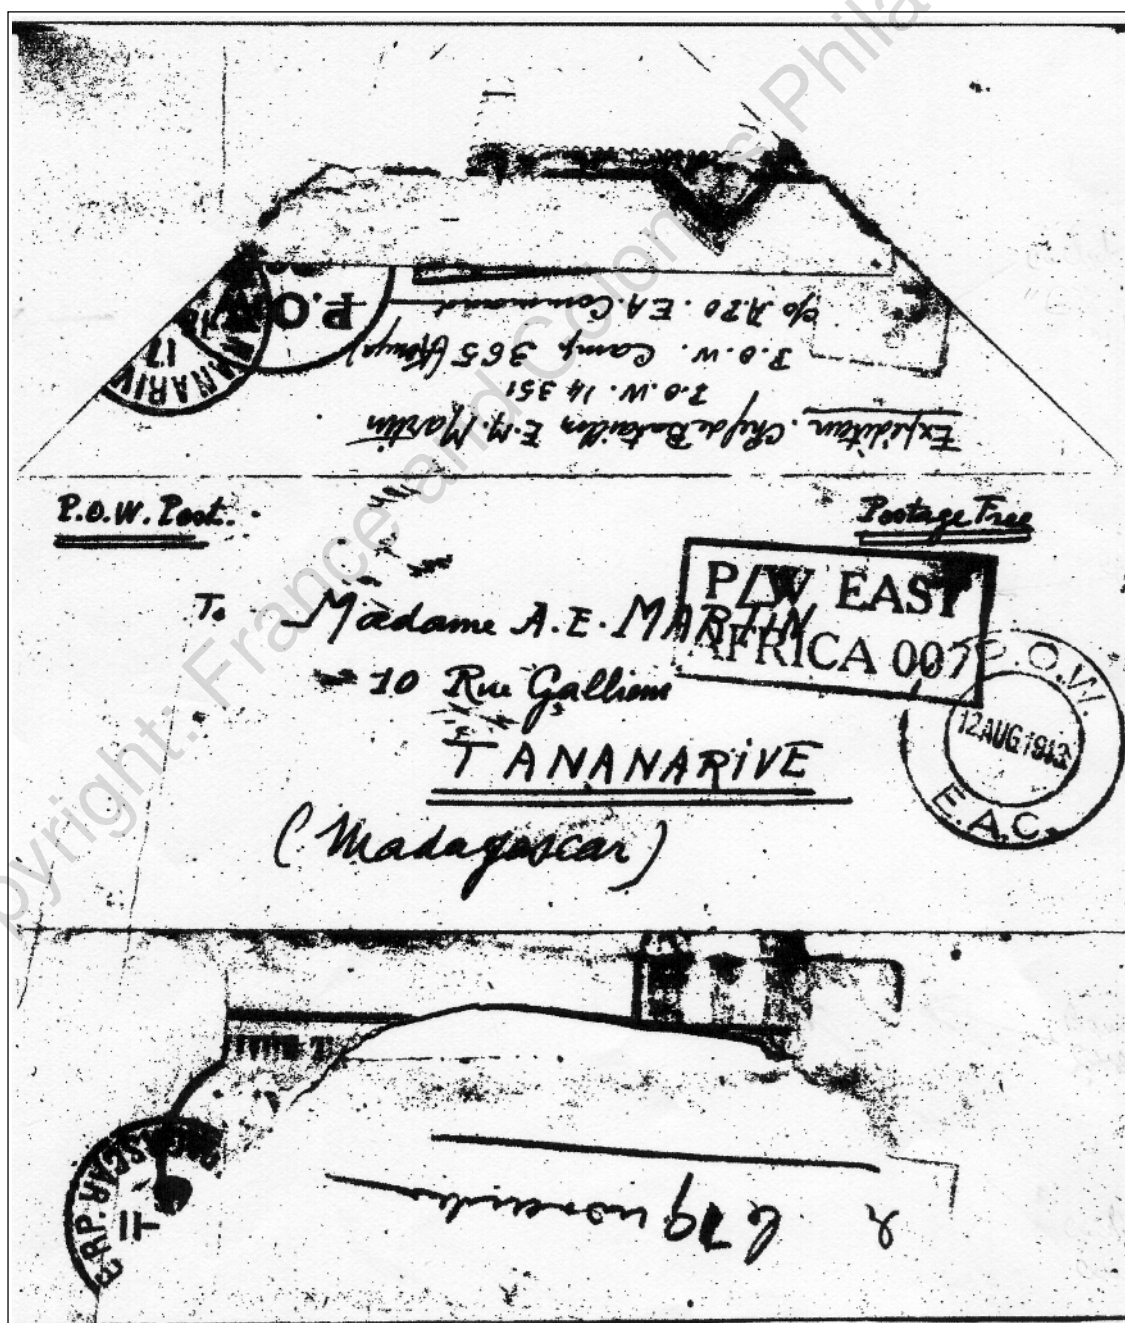 Copyright: France and Colonies Phila
Expéditeur. Chef de Bataillon E.M. Martin
P.O.W. 14351
P.O.W. Camp 365 (Kenya)
c/o A.P.O. E.A. Command
P.O.W
TANANARIV
17
P.O.W. Post.
Postage Free
P/W EAST
AFRICA 007
To Madame A.E. MARTIN
10 Rue Gallieni
TANANARIVE
(Madagascar)
P.O.W.
12 AUG 1943
E.A.C.
11